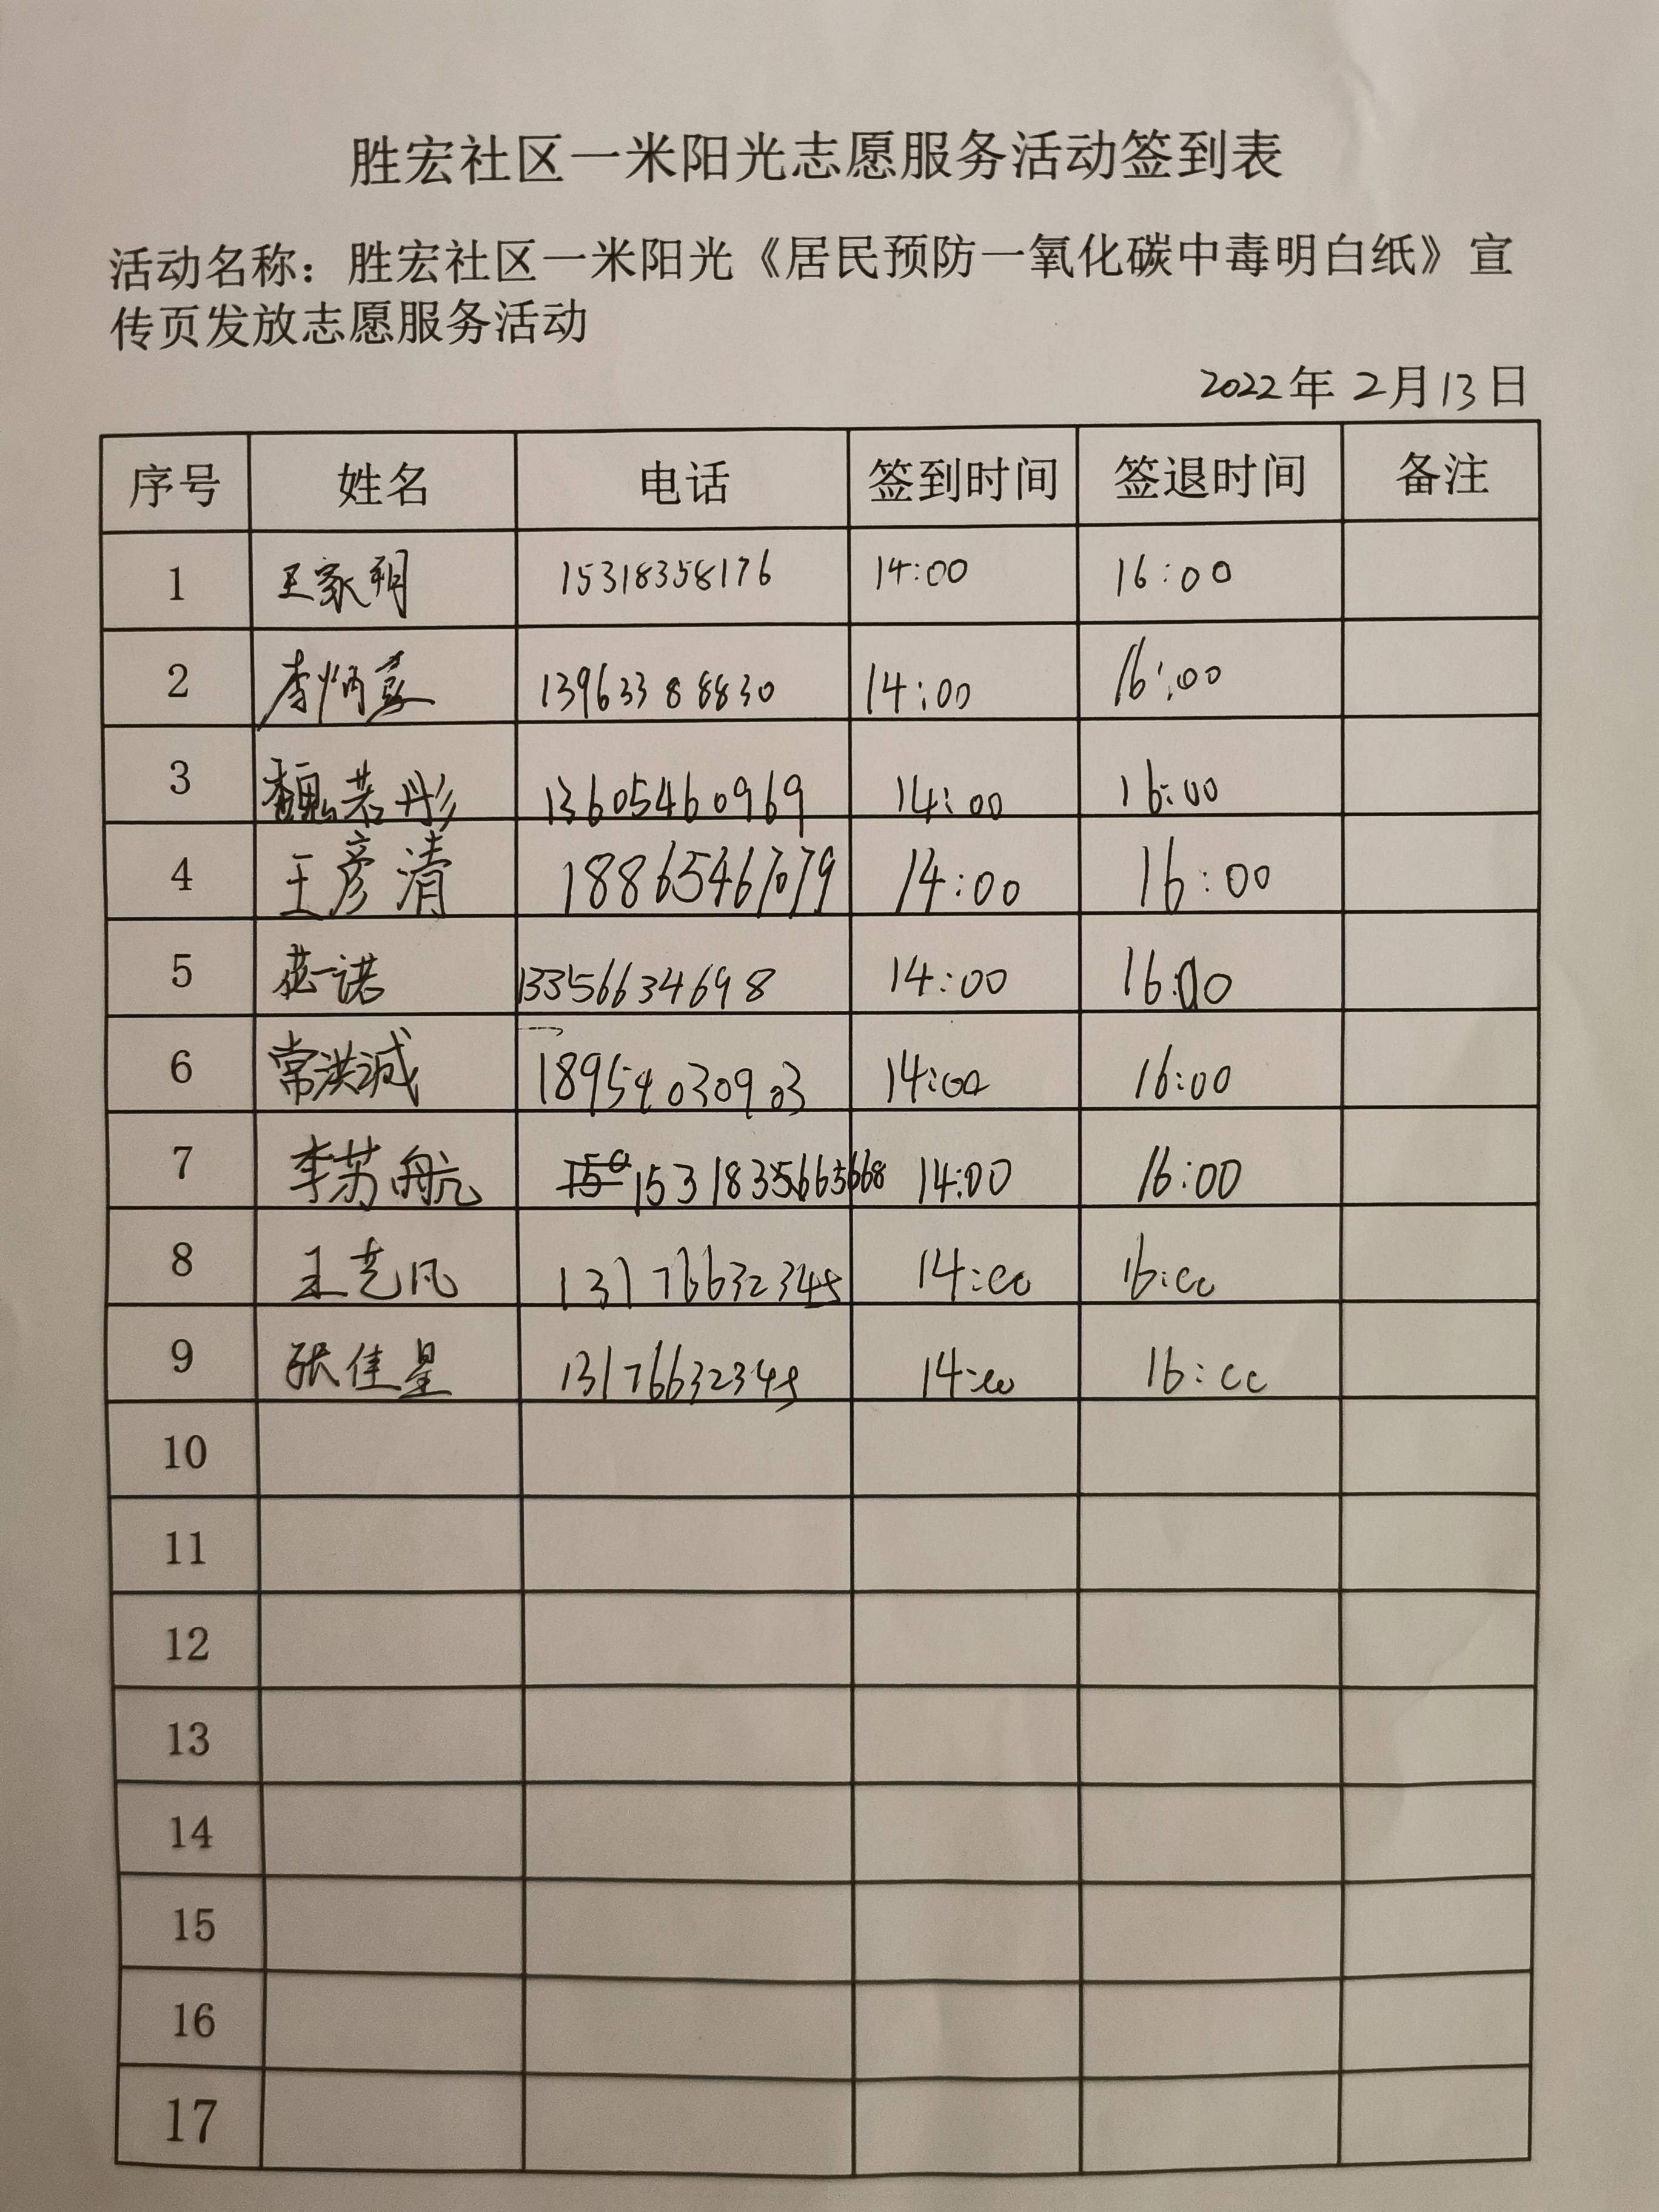 胜宏社区一米阳光志愿服务活动签到表
活动名称：胜宏社区一米阳光《居民预防一氧化碳中毒明白纸》宣
传页发放志愿服务活动
2022年 2月13日
序号 姓名 电话 签到时间 签退时间 备注
1 王家玥 15318358176 14:00 16:00
2 李炳 13963388830 14:00 16:00
3 魏若彤 13605460969 14:00 16:00
4 王彦清 18865467079 14:00 16:00
5 一诺 13356634698 14:00 16:00
6 常洪诚 18954030903 14:00 16:00
7 李苏航 14:00 16:00
8 王艺凡 13176632345 14:00 16:00
9 张佳星 13176632345 14:00 16:00
10
11
12
13
14
15
16
17